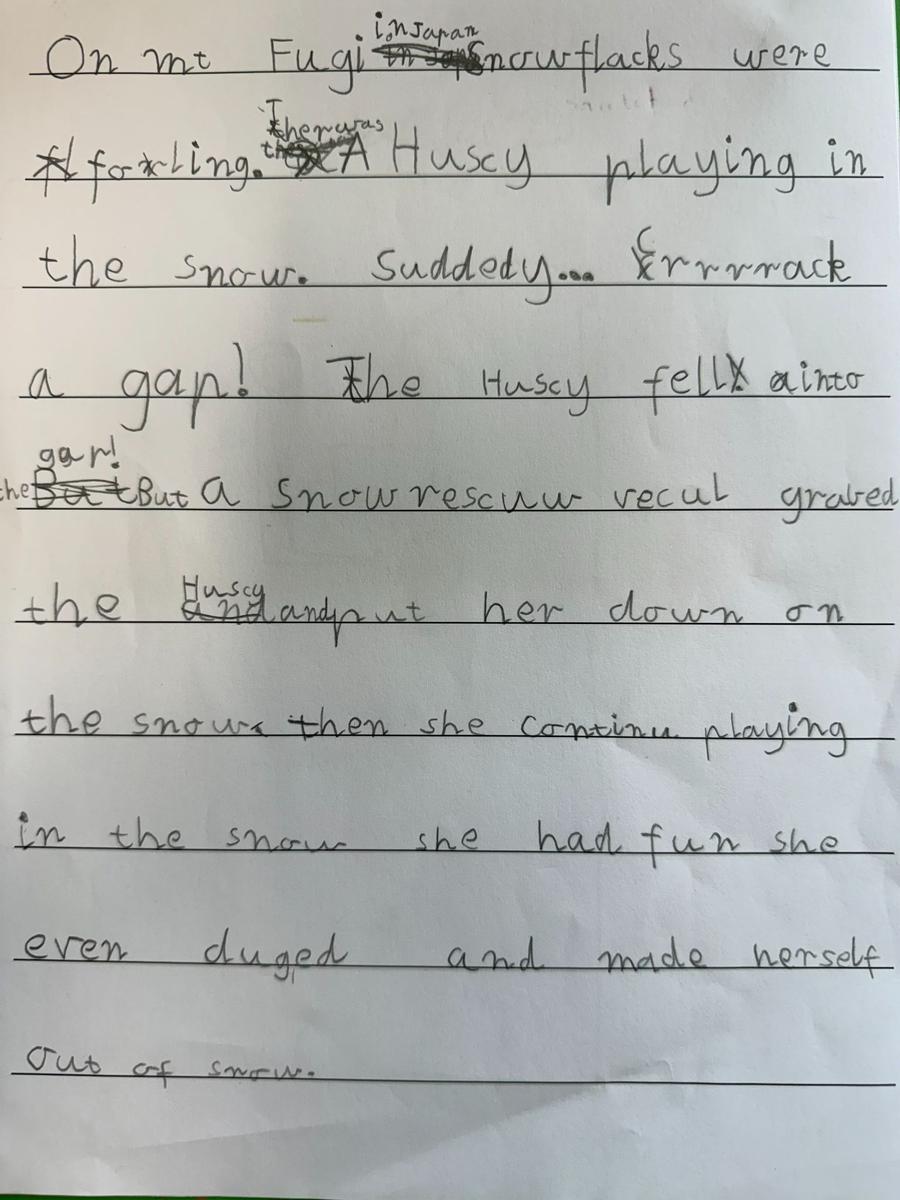 On mt Fugi in Japan Snowflacks were
forling. Ther was A Huscy playing in
the snow. Suddedy... Crrrrrack
a gap! The Huscy fell into
the gap! But a snow rescuw vecul grabed
the Huscy and put her down on
the snow. then she continu playing
in the snow she had fun she
even duged and made herself
out of snow.